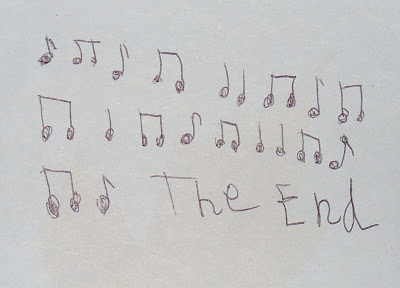 The End